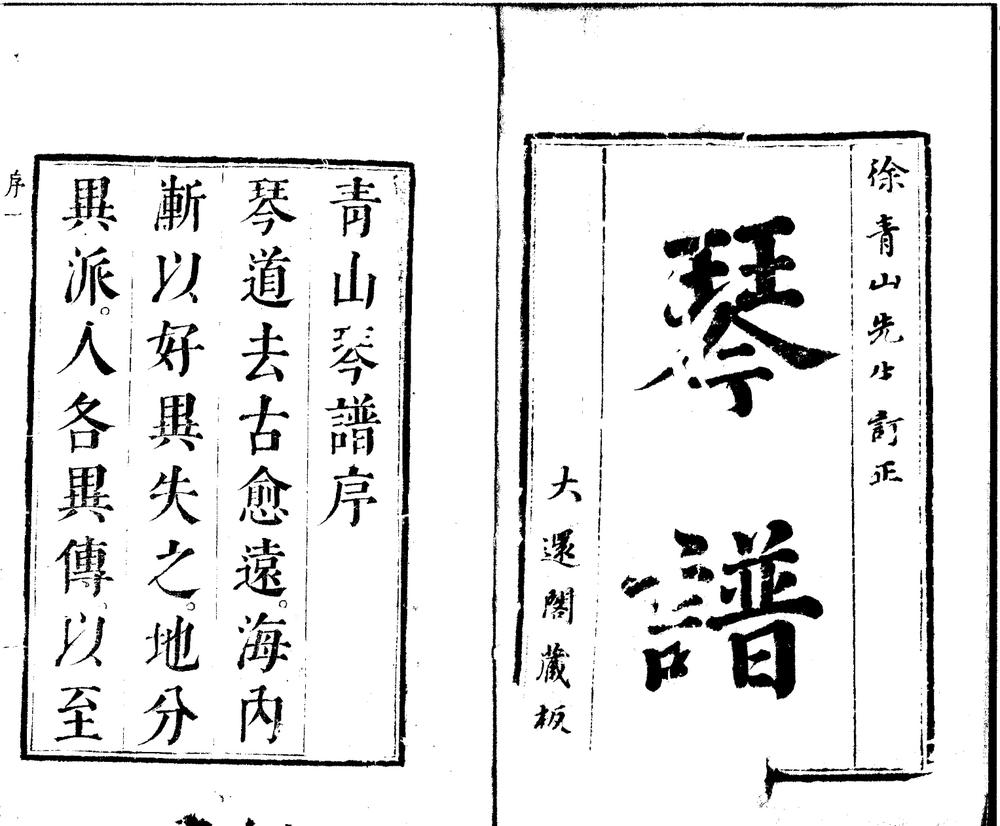 徐青山先生訂正
琴譜
大還閣藏板
青山琴譜序
琴道去古愈遠。海內
漸以好異失之。地分
異派。人各異傳。以至
序一